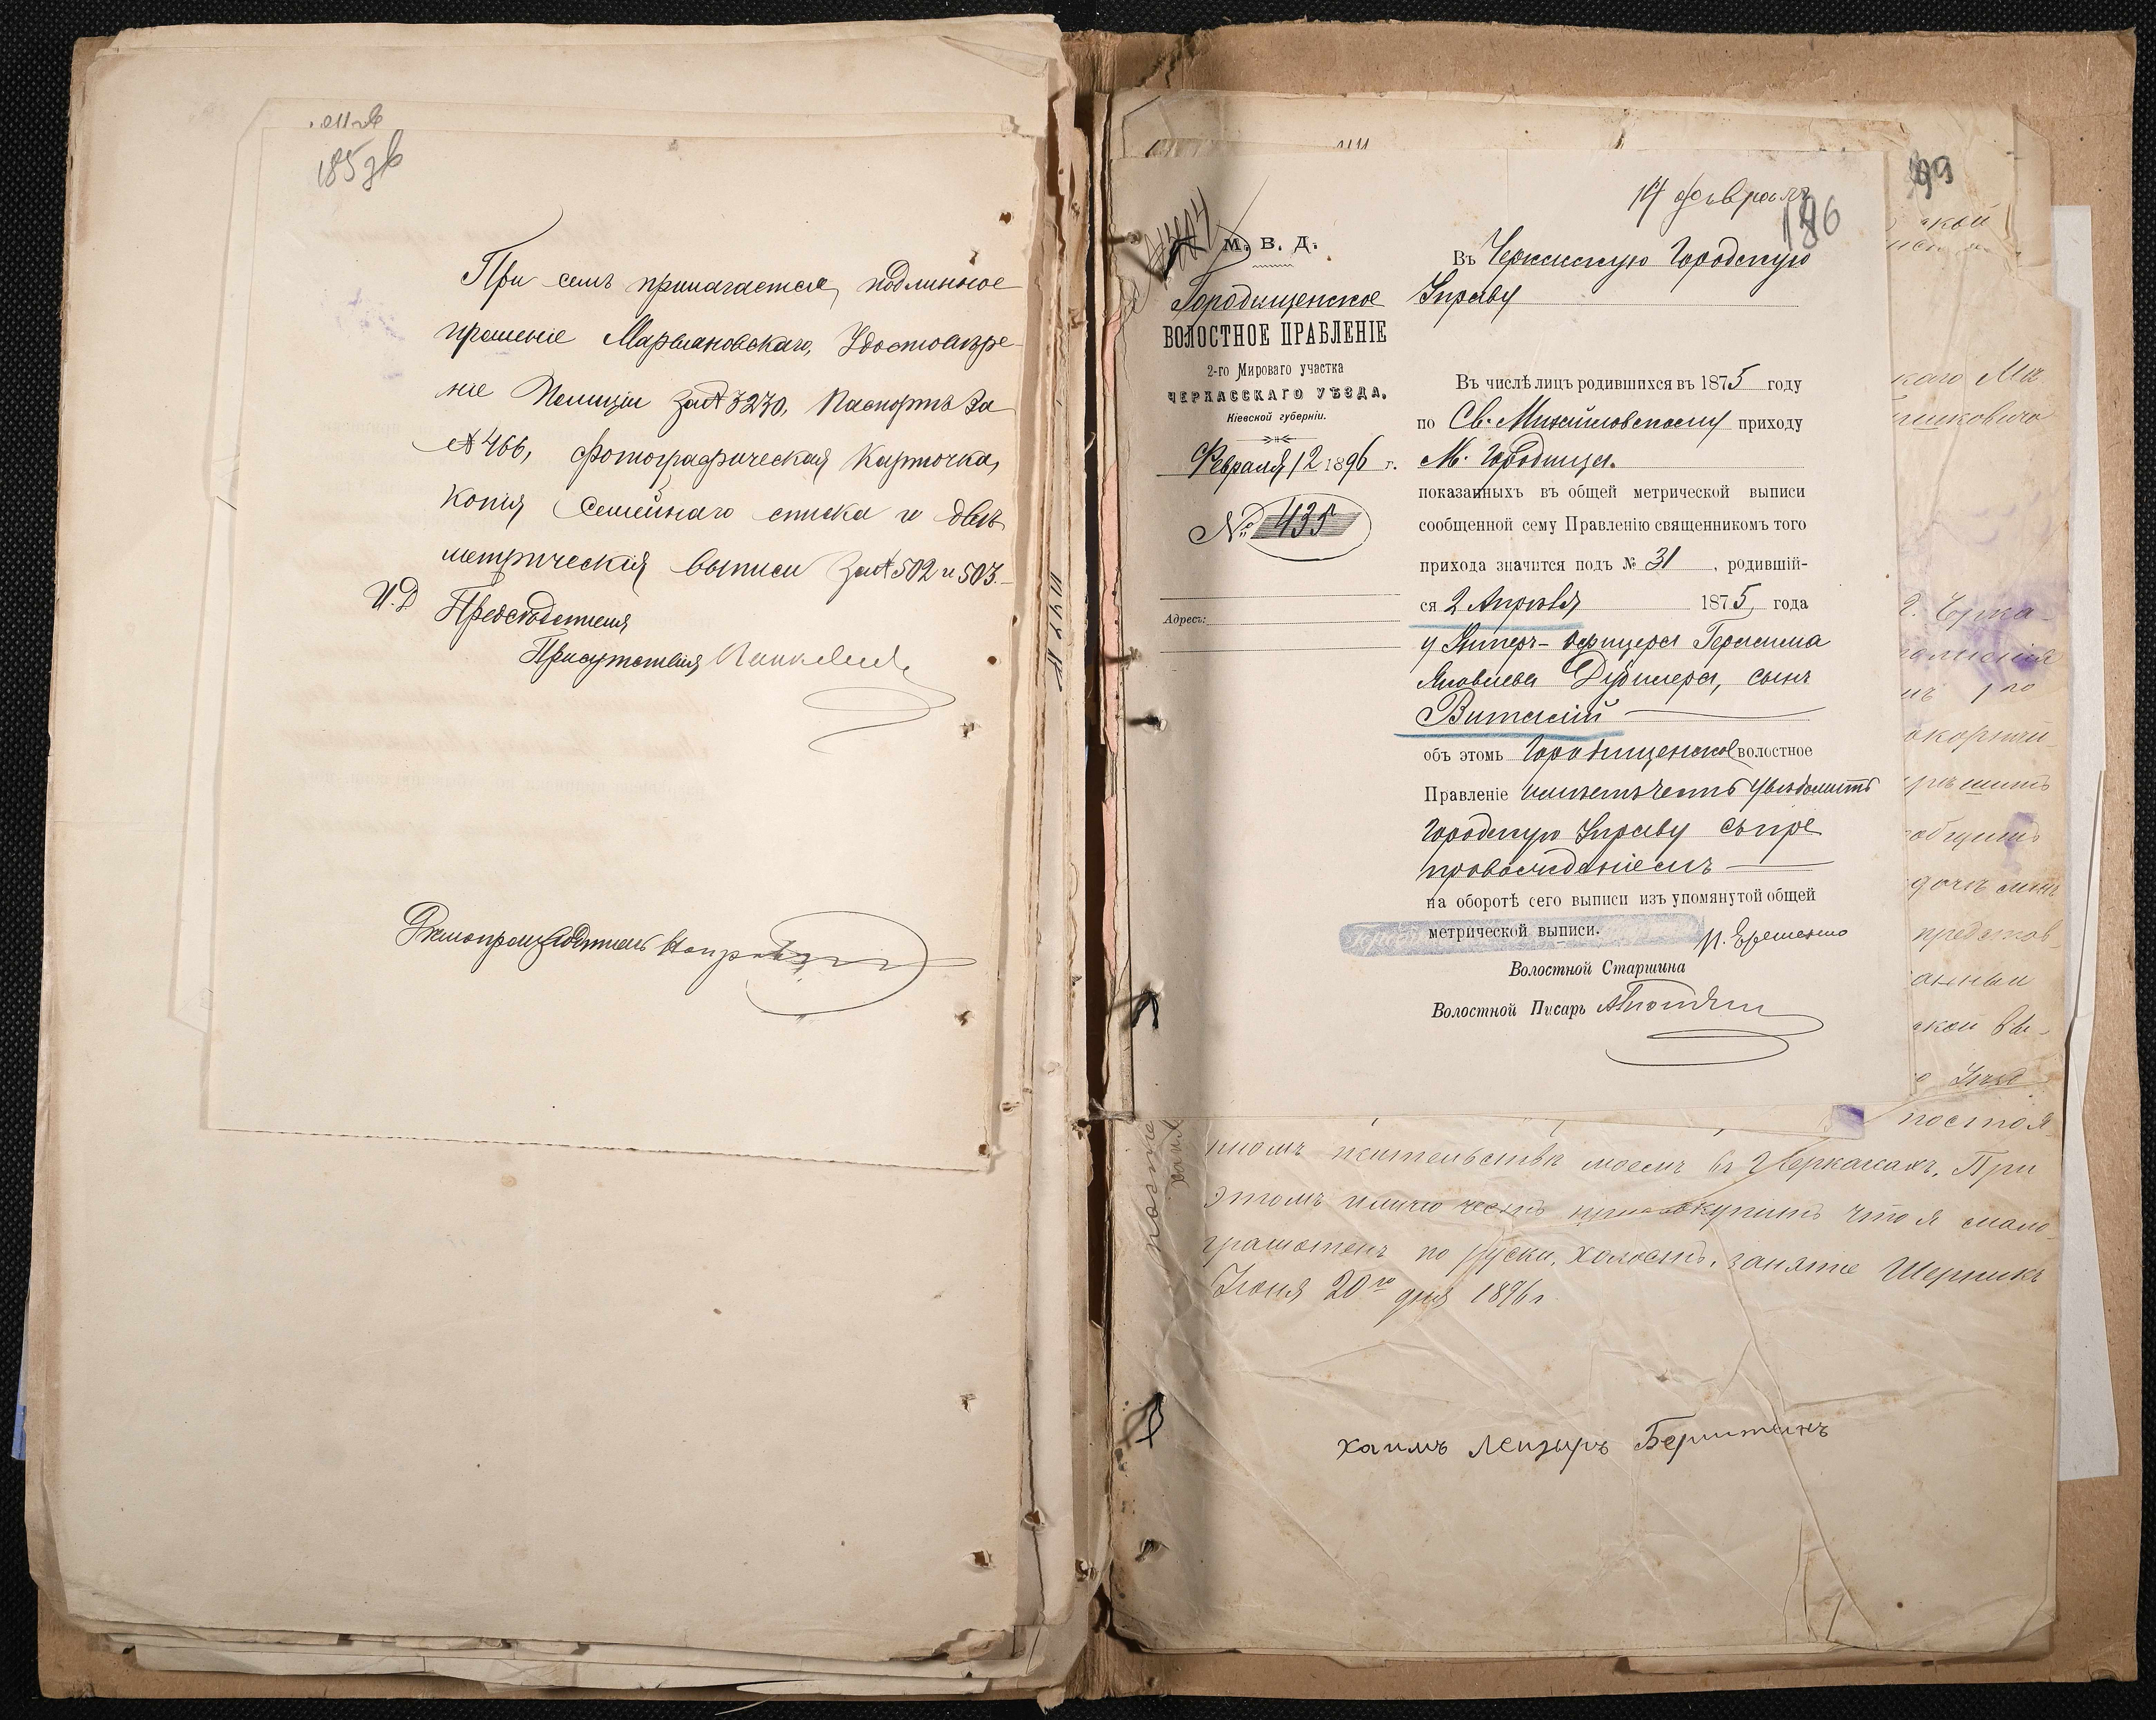 185 зв
При семъ прилагается, подлинное
прошеніе Марьяновскаго, Удостовѣре-
ніе Полиціи за № 3230, Паспортъ за
№ 466, фотографическая карточка,
копія Семейнаго списка и двѣ
метрическія выписи за № 502 и 503.
И.Д. Предсѣдателя
Присутствія
Дѣлопроизводитель
14 февраля
186
М. В. Д.
Городищенское
ВОЛОСТНОЕ ПРАВЛЕНІЕ
2-го Мироваго участка
ЧЕРКАССКАГО УѢЗДА,
Кіевской губерніи.
Февраля 12 1896 г.
№ 435
Адресъ:
Въ Черкасскую Городскую
Управу
Въ числѣ лицъ родившихся въ 1875 году
по Св. Михайловскому приходу
М. Городища.
показанныхъ въ общей метрической выписи
сообщенной сему Правленію священникомъ того
прихода значится подъ № 31, родившій-
ся 2 Апрѣля 1875 года
у Унтеръ-Офицера Герасима
Яковлева Дубилера, сынъ
Виталій
объ этомъ Городищенское волостное
Правленіе имѣетъ честь увѣдомить
Городскую Управу съ пре
провожденіемъ
на оборотѣ сего выписи изъ упомянутой общей
метрической выписи.
Волостной Старшина
Волостной Писарь
99
постоя-
нномъ жительствѣ моемъ въ г. Черкасахъ. При
этомъ имѣю честь присовокупить что я мало
грамотенъ по руски, холостъ, занятіе
Іюня 20го дня 1896 г
хаимъ Лейзеръ Бернштейнъ